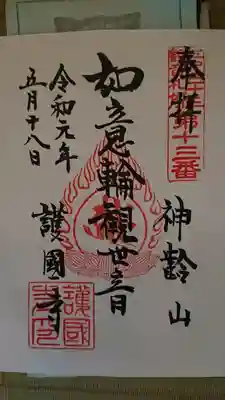 奉拝
第十三番
神齢山
如意輪観世音
護國寺
令和元年
五月十八日
護國寺印